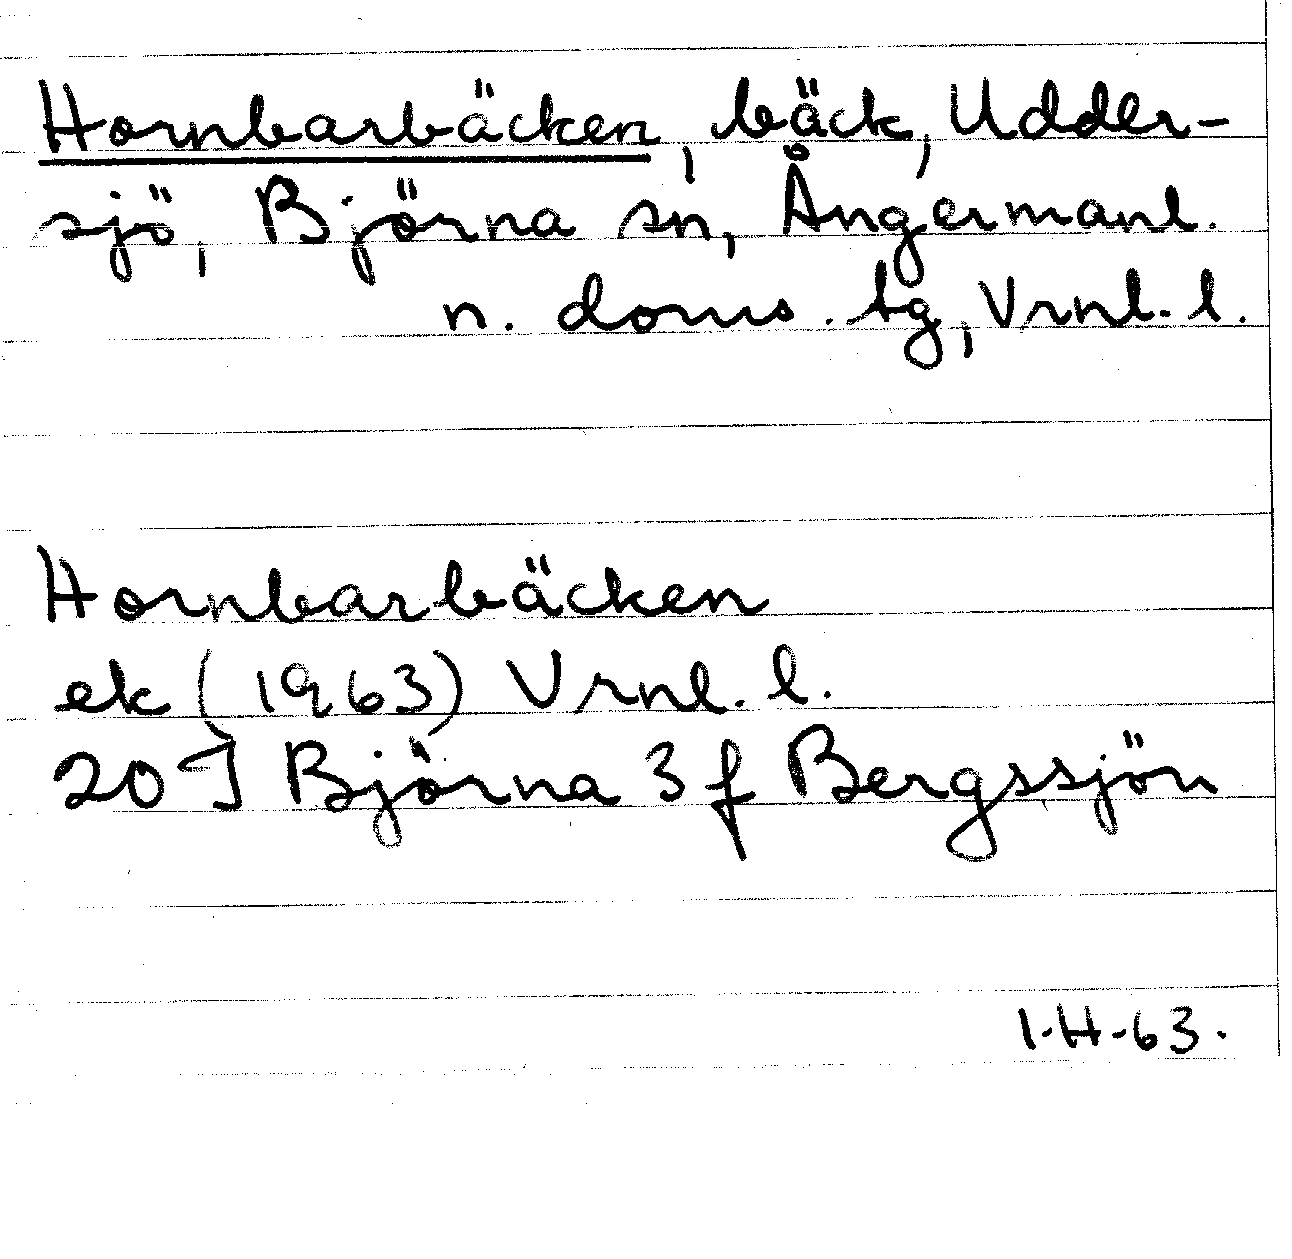 Hornbarbäcken, bäck, Udder-
sjö, Björna sn, Ångermanl.
n. doms. tg, Vrnl. l.
Hornbarbäcken
ek (1963) Vrnl. l.
20 I Björna 3 f Bergssjön
1-H-63.